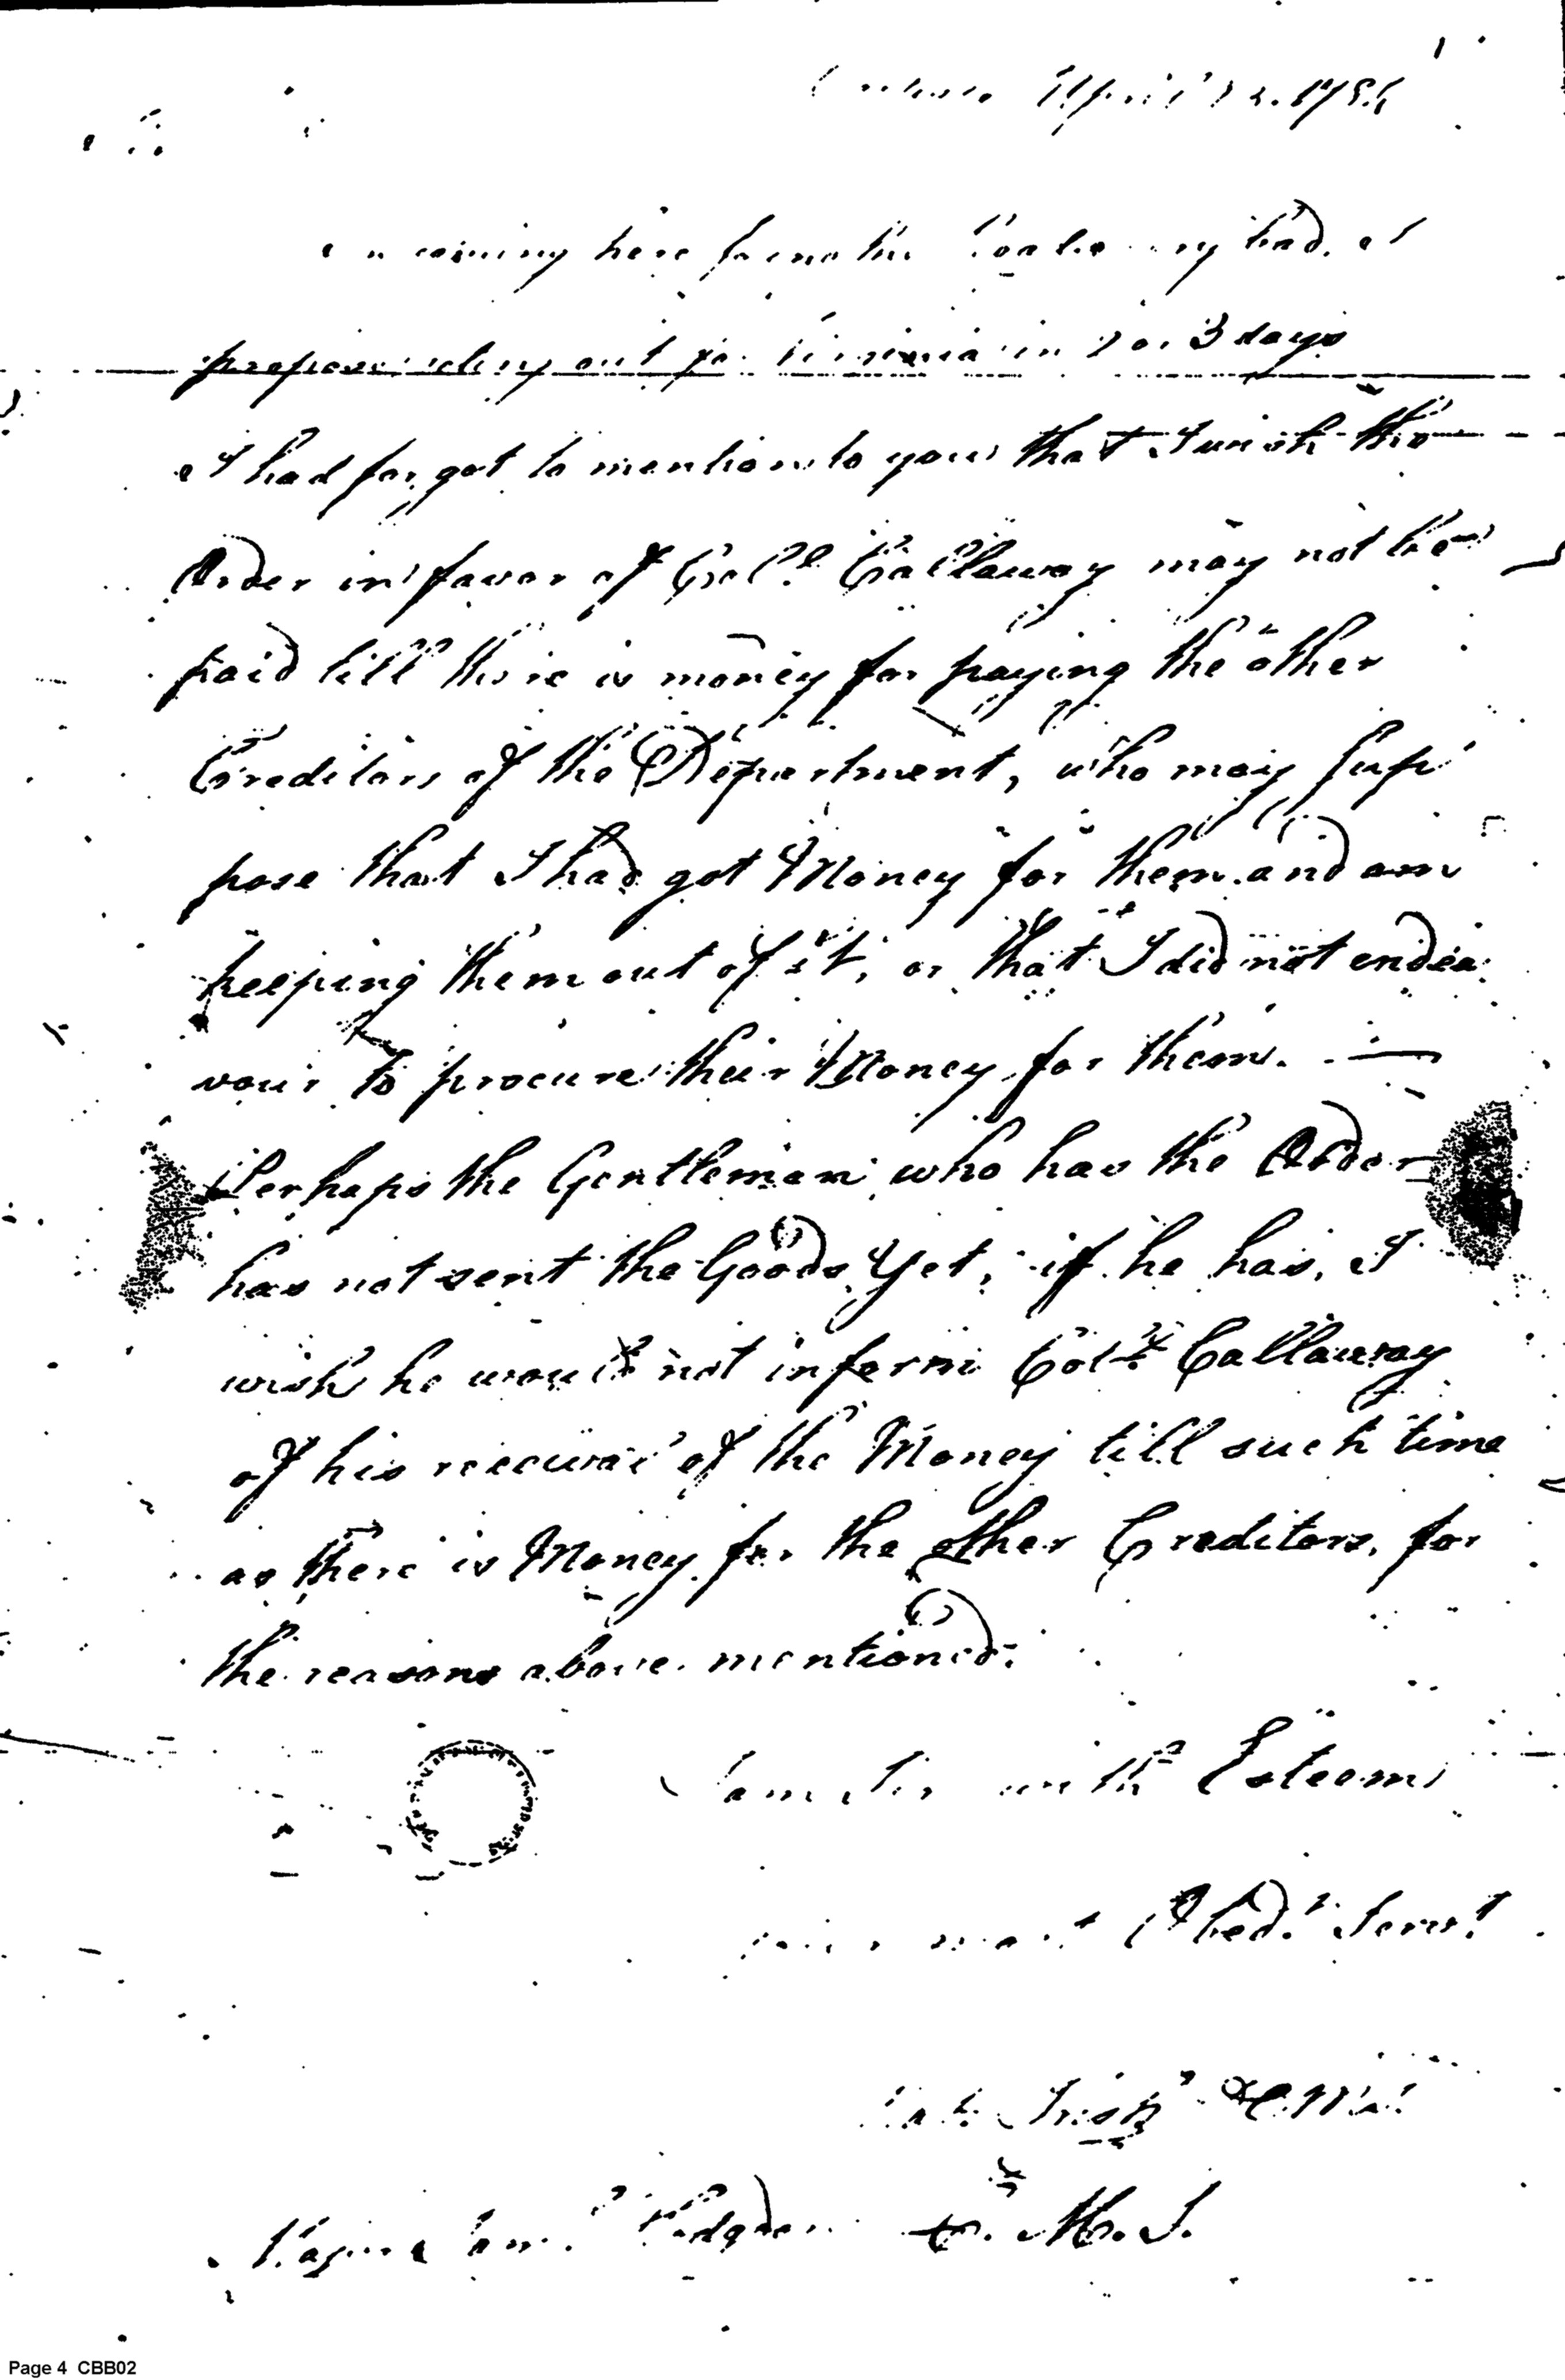 April 1781
coming here found the bad. I
propose seting out for Virginia in 2 or 3 days
I had forgot to mention to you that I wish the
Order in favor of Col.l Callaway may not be
paid till there is money for paying the other
Creditors of the Department, who may sup
pose that I had got Money for them and am
keeping them out of it, or that I did not endea
vour to procure their Money for them. —
Perhaps the Gentleman who has the Order
has not sent the Goods Yet, if he has, I
wish he would not inform Col.l Callaway
of his receival of the Money till such time
as there is Money for the other Creditors, for
the reasons above mentioned.
I am Sir with Esteem
your most Obed.t Serv.t
Nath. Irish
Major Sam.l Hodgdon M. S.
Page 4 CBB02